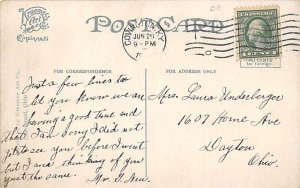 POST CARD
Kraemer Art Co
Cincinnati
JUN 29
9-PM
TWO CENTS
for foreign
FOR CORRESPONDENCE
FOR ADDRESS ONLY
Just a few lines to
let you know we are
having a good time and
That I am sorry I did not
get to see you before I went
but I am thinking of you
just the same.
Mr. J. Neu
Mrs. Laura Underberger
1607 Home Ave
Dayton
Ohio.